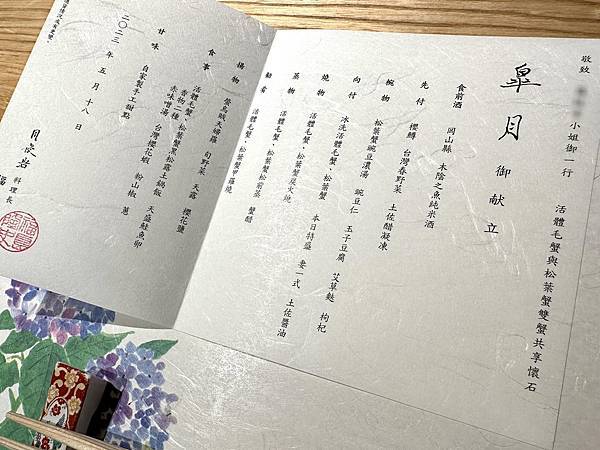 敬致 小姐御一行 活體毛蟹與松葉蟹雙蟹共享懷石
皐月 御献立
食前酒 岡山縣 木陰之魚純米酒
先付 櫻鱒 台灣春野菜 土佐醋凝凍
椀物 松葉蟹豌豆濃湯 豌豆仁 玉子豆腐 艾草麩 枸杞
向付 冰洗活體毛蟹、松葉蟹 本日特盛 妻一式 土佐醬油
燒物 活體毛蟹、松葉蟹炭火燒
蒸物 活體毛蟹、松葉蟹松前蒸 蟹醋
肴 活體毛蟹、松葉蟹甲羅燒
揚物 螢烏賊天婦羅 旬野菜 天露 櫻花鹽
食事 活體毛蟹、松葉蟹黑松露土鍋飯 天盛鮭魚卵
香物二種 台灣櫻花蝦 粉山椒 蔥
赤味噌湯
甘味 自家製手工甜點
二〇二三年 五月 十八 日
料理長